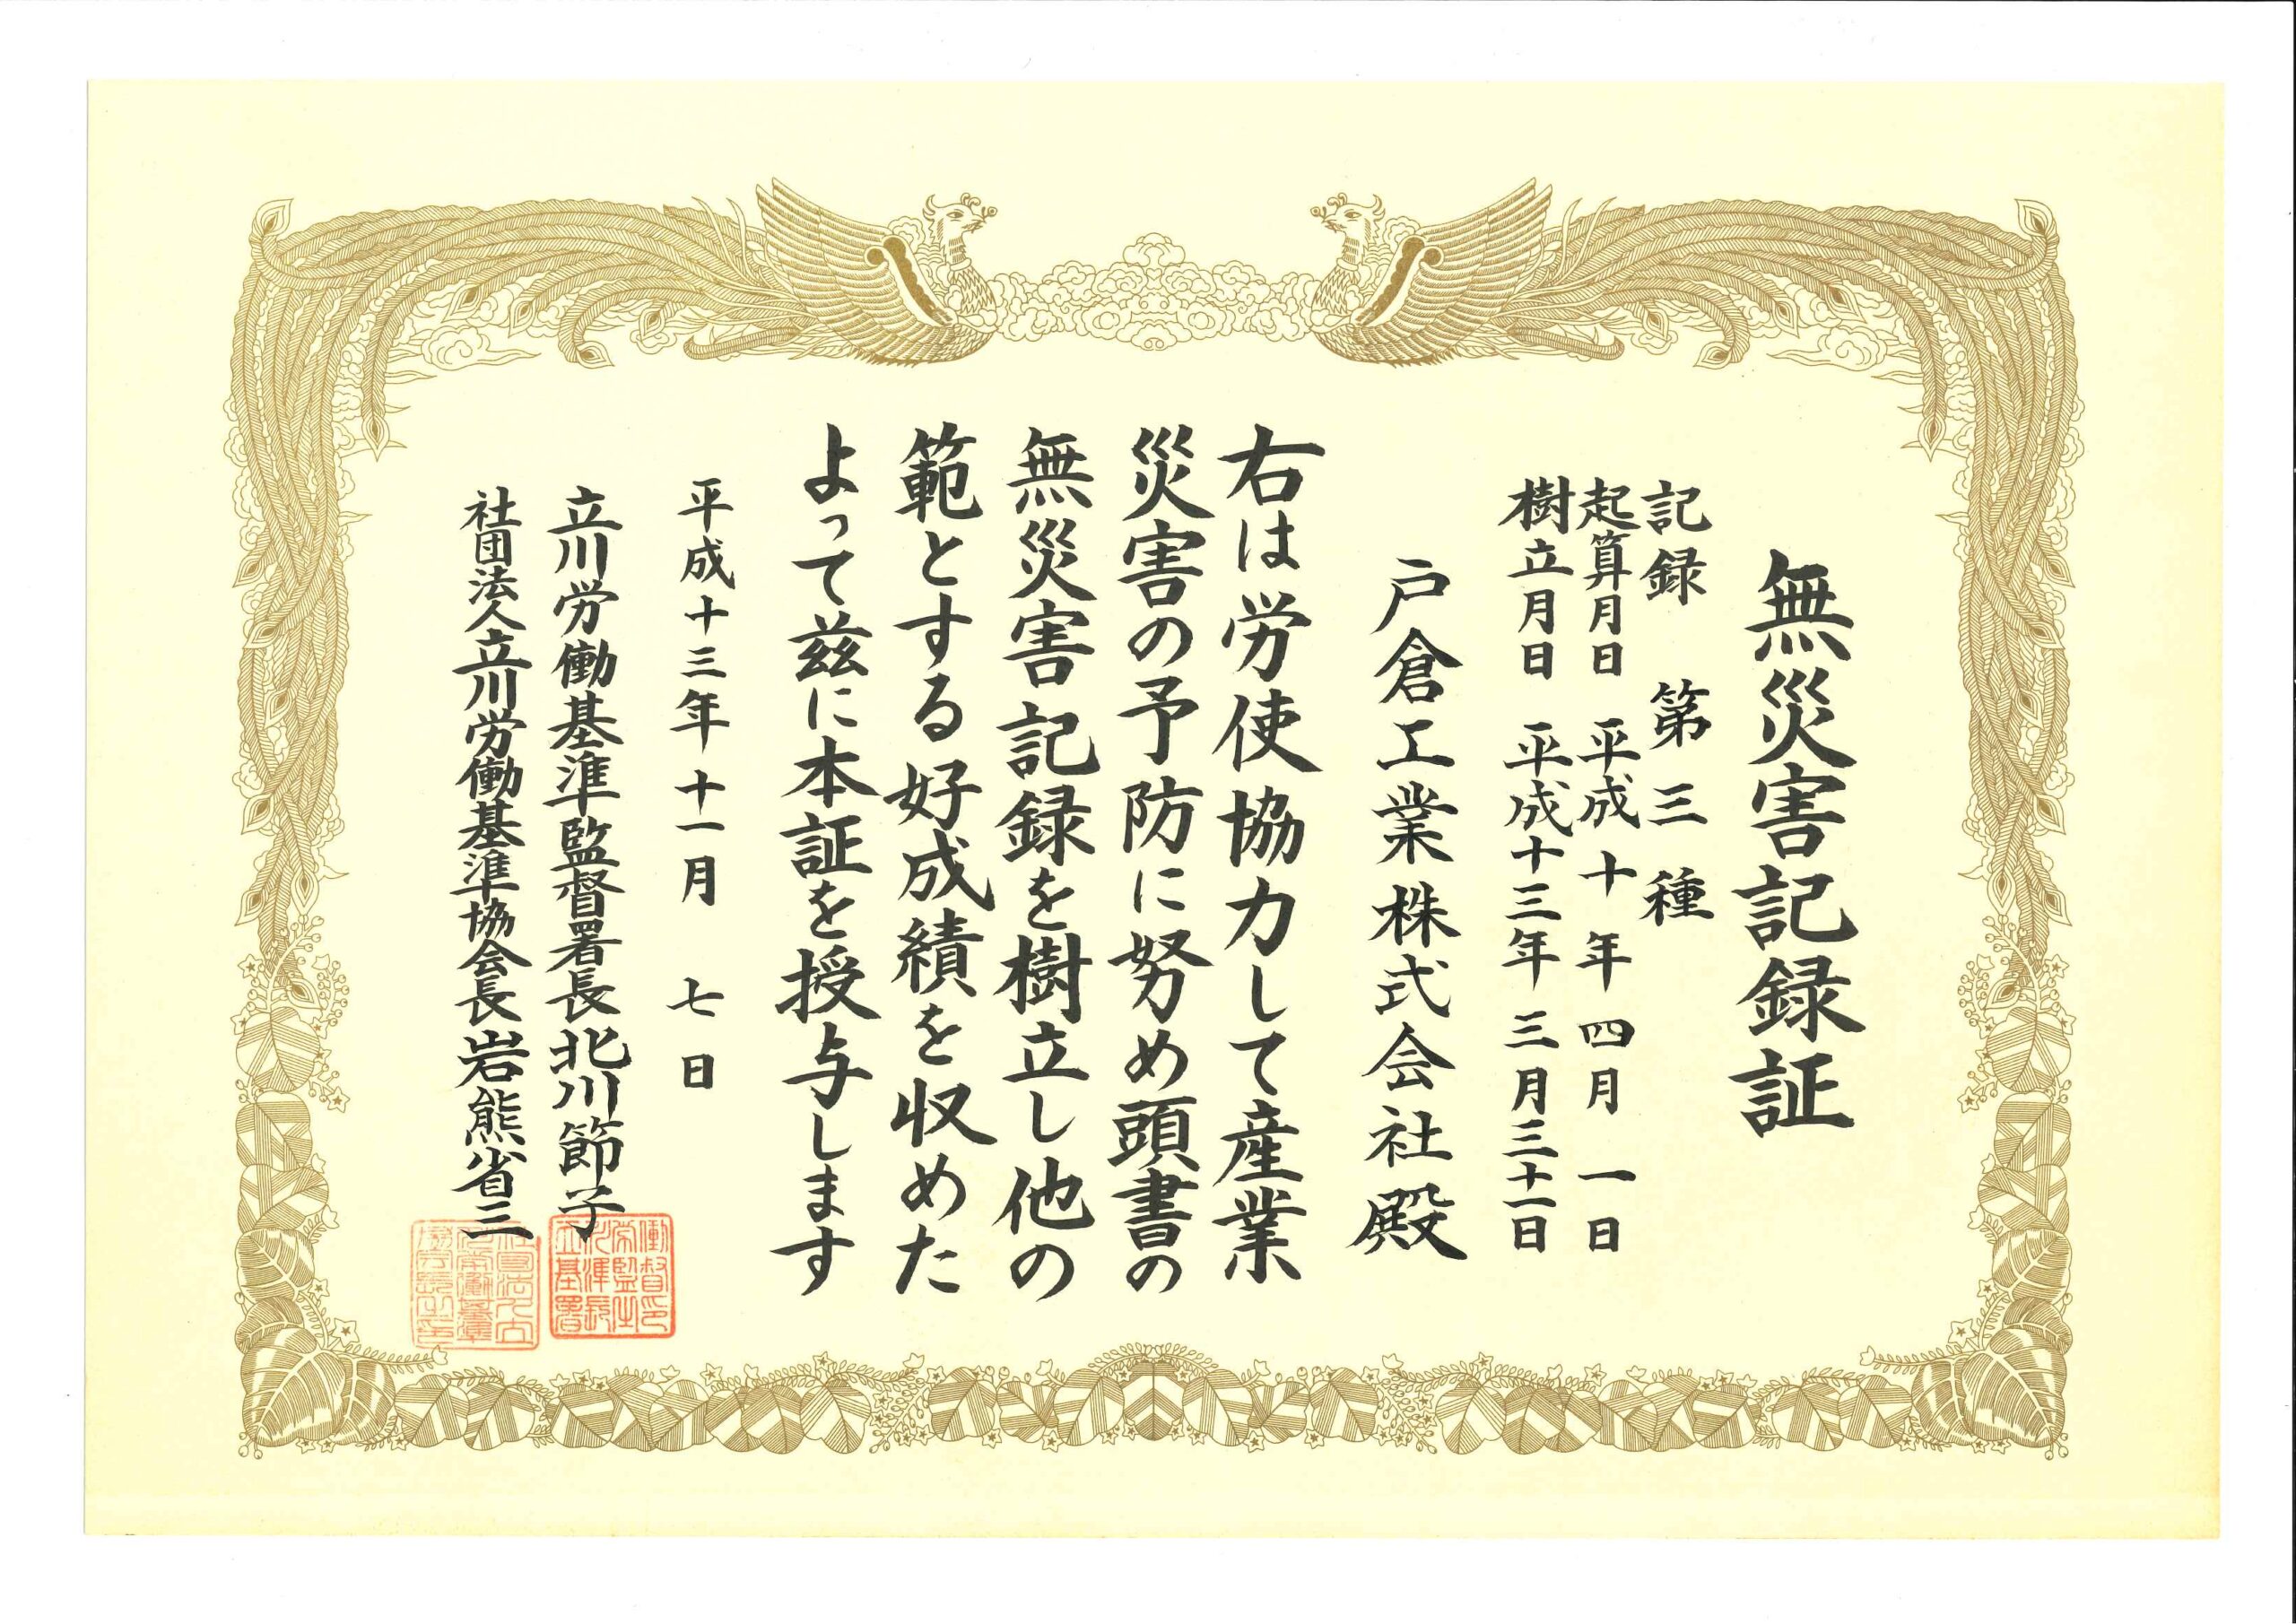 無災害記録証
記録 第三種
起算月日 平成十年四月一日
樹立月日 平成十三年三月三十一日
戸倉工業株式会社殿
右は労使協力して産業
災害の予防に努め頭書の
無災害記録を樹立し他の
範とする好成績を収めた
よって茲に本証を授与します
平成十三年十一月 七日
立川労働基準監督署長北川節子
社団法人立川労働基準協会長岩熊省三